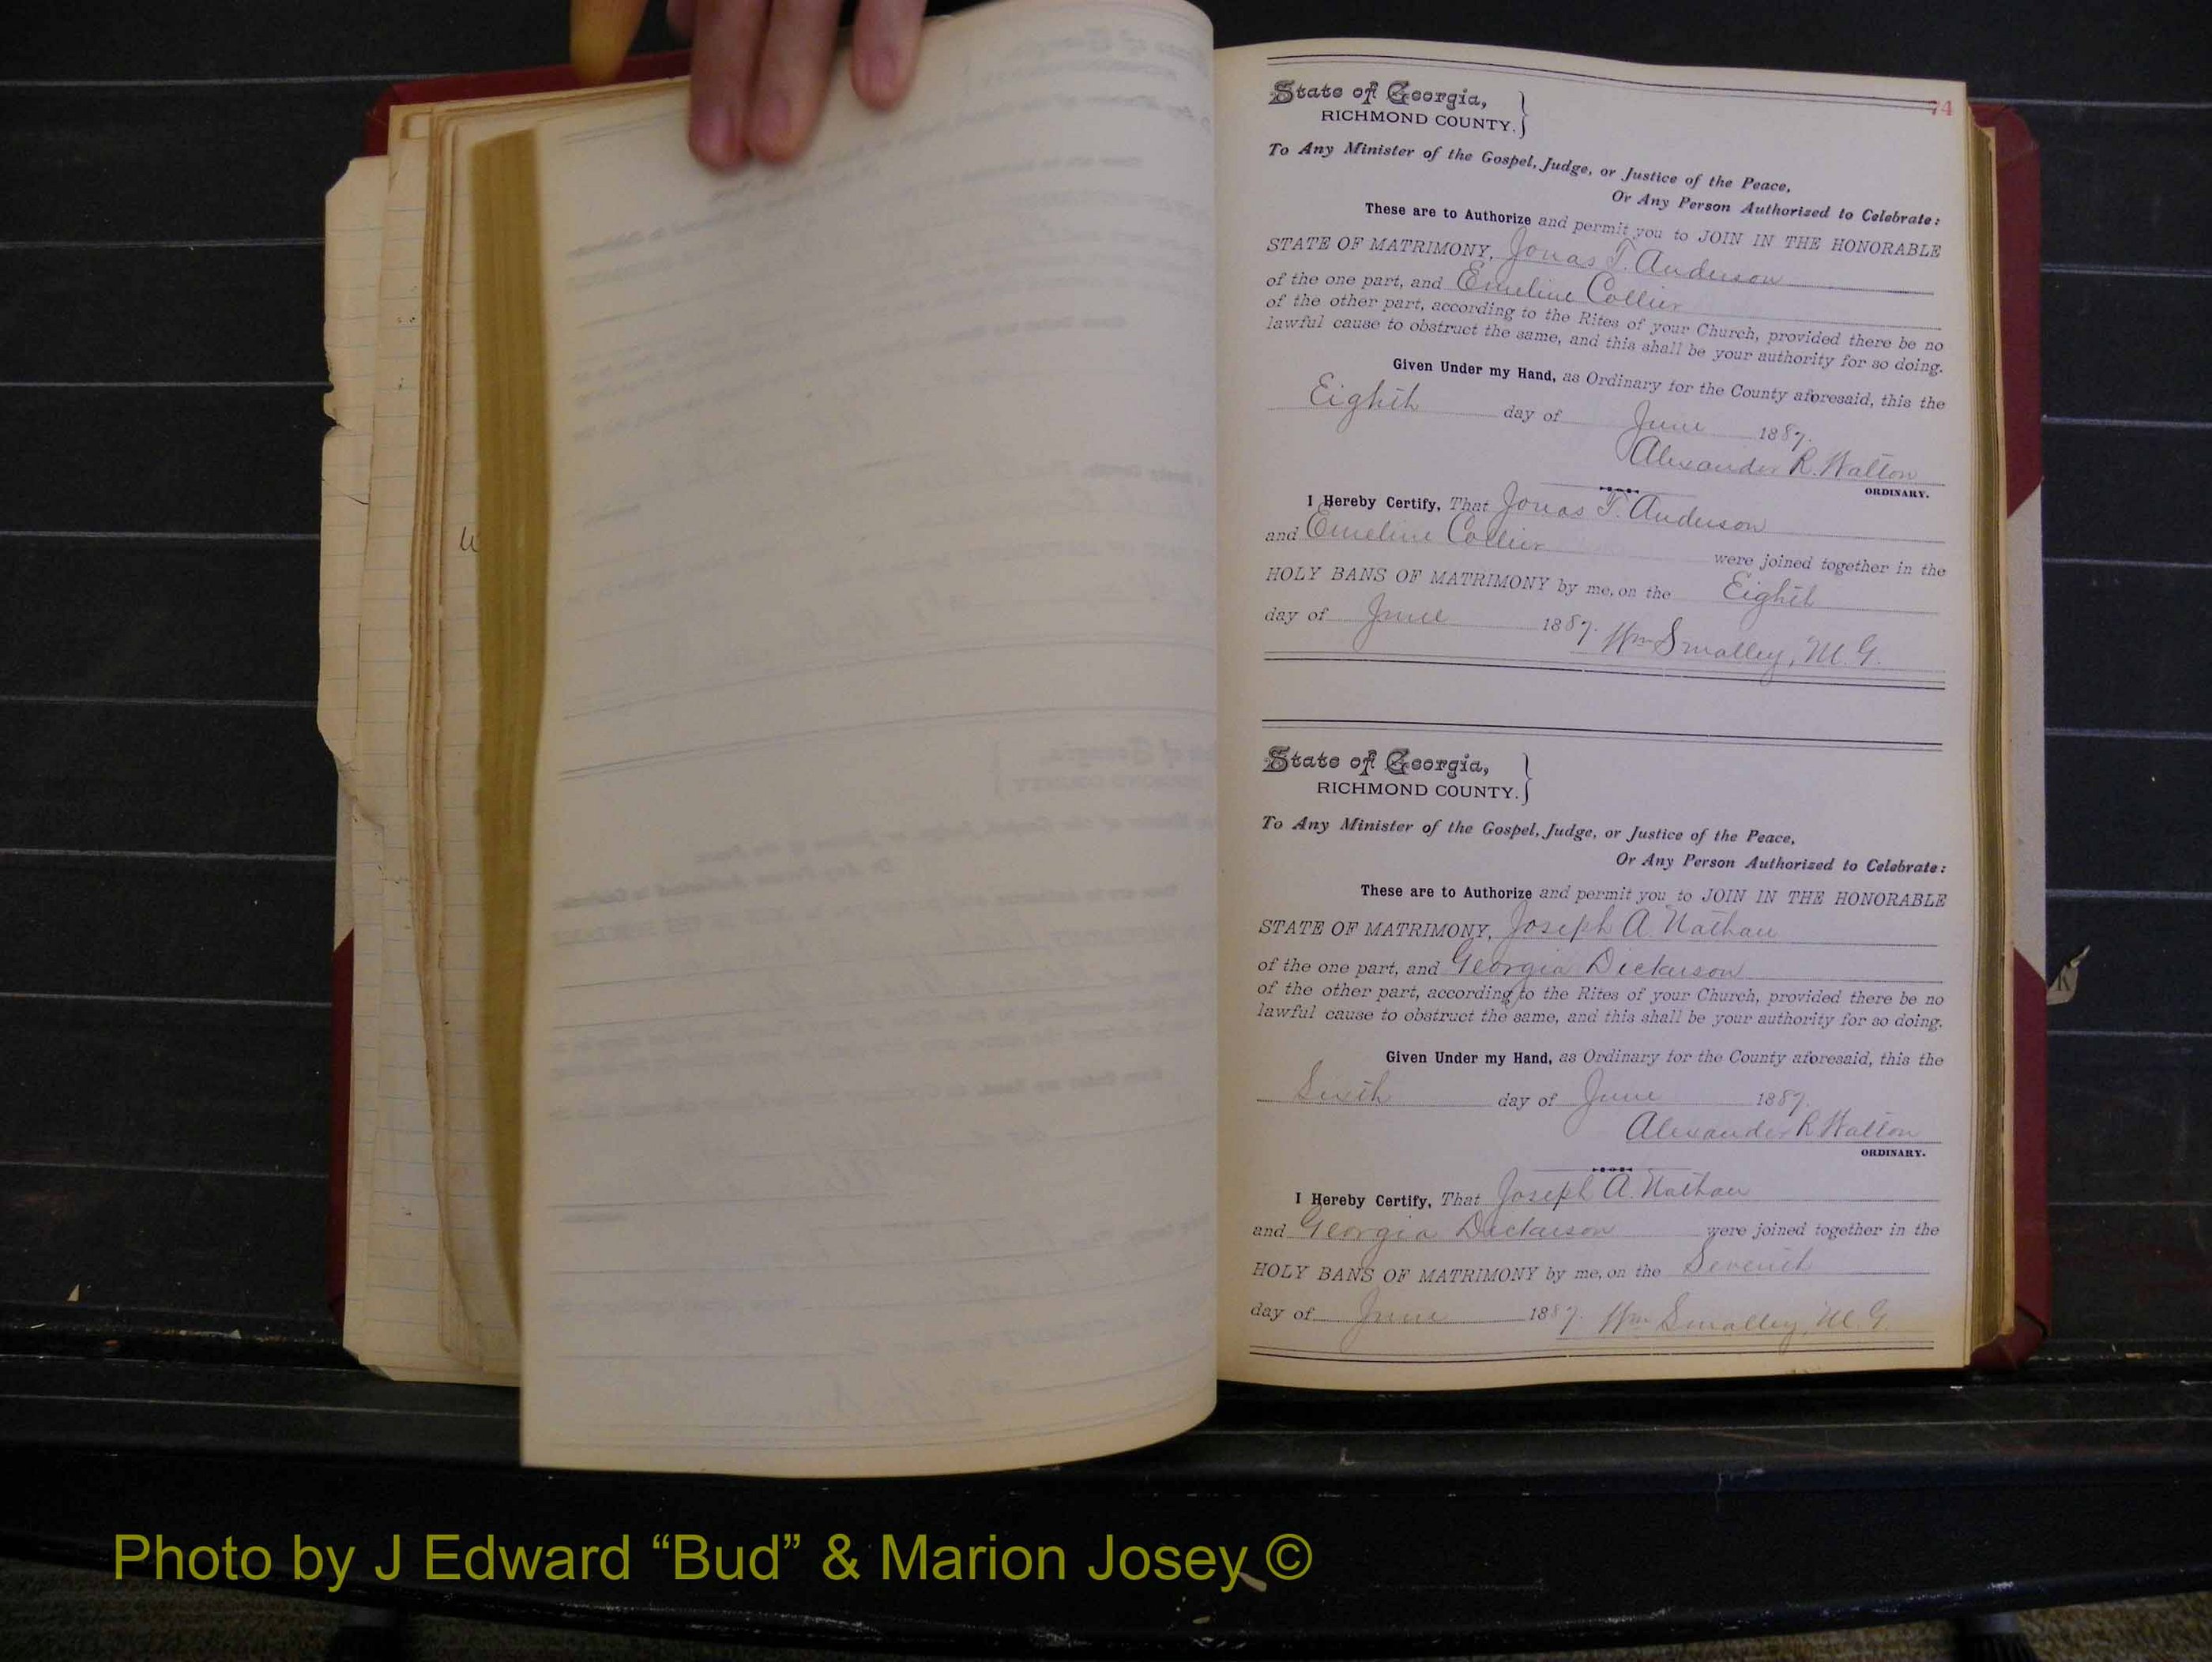 74
State of Georgia,
RICHMOND COUNTY.
To Any Minister of the Gospel, Judge, or Justice of the Peace,
Or Any Person Authorized to Celebrate:
These are to Authorize and permit you to JOIN IN THE HONORABLE
STATE OF MATRIMONY, Jonas T. Anderson
of the one part, and Emeline Collier
of the other part, according to the Rites of your Church, provided there be no
lawful cause to obstruct the same, and this shall be your authority for so doing.
Given Under my Hand, as Ordinary for the County aforesaid, this the
Eighth day of June 1887.
Alexander R. Walton
ORDINARY.
I Hereby Certify, That Jonas T. Anderson
and Emeline Collier were joined together in the
HOLY BANS OF MATRIMONY by me, on the Eighth
day of June 1887. Wm Smalley, M. G.
State of Georgia,
RICHMOND COUNTY.
To Any Minister of the Gospel, Judge, or Justice of the Peace,
Or Any Person Authorized to Celebrate:
These are to Authorize and permit you to JOIN IN THE HONORABLE
STATE OF MATRIMONY, Joseph A. Nathan
of the one part, and Georgia Dickerson
of the other part, according to the Rites of your Church, provided there be no
lawful cause to obstruct the same, and this shall be your authority for so doing.
Given Under my Hand, as Ordinary for the County aforesaid, this the
Sixth day of June 1887.
Alexander R. Walton
ORDINARY.
I Hereby Certify, That Joseph A. Nathan
and Georgia Dickerson were joined together in the
HOLY BANS OF MATRIMONY by me, on the Seventh
day of June 1887. Wm Smalley, M. G.
Photo by J Edward “Bud” & Marion Josey ©